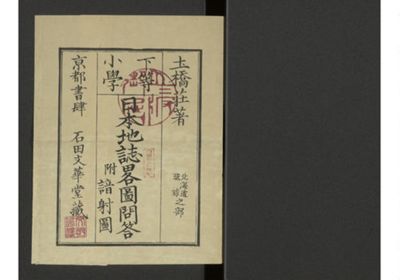 土橋莊著
北海道
琉球之部
下等
小學
日本地誌畧圖問答
附諳射圖
京都書肆 石田文華堂藏